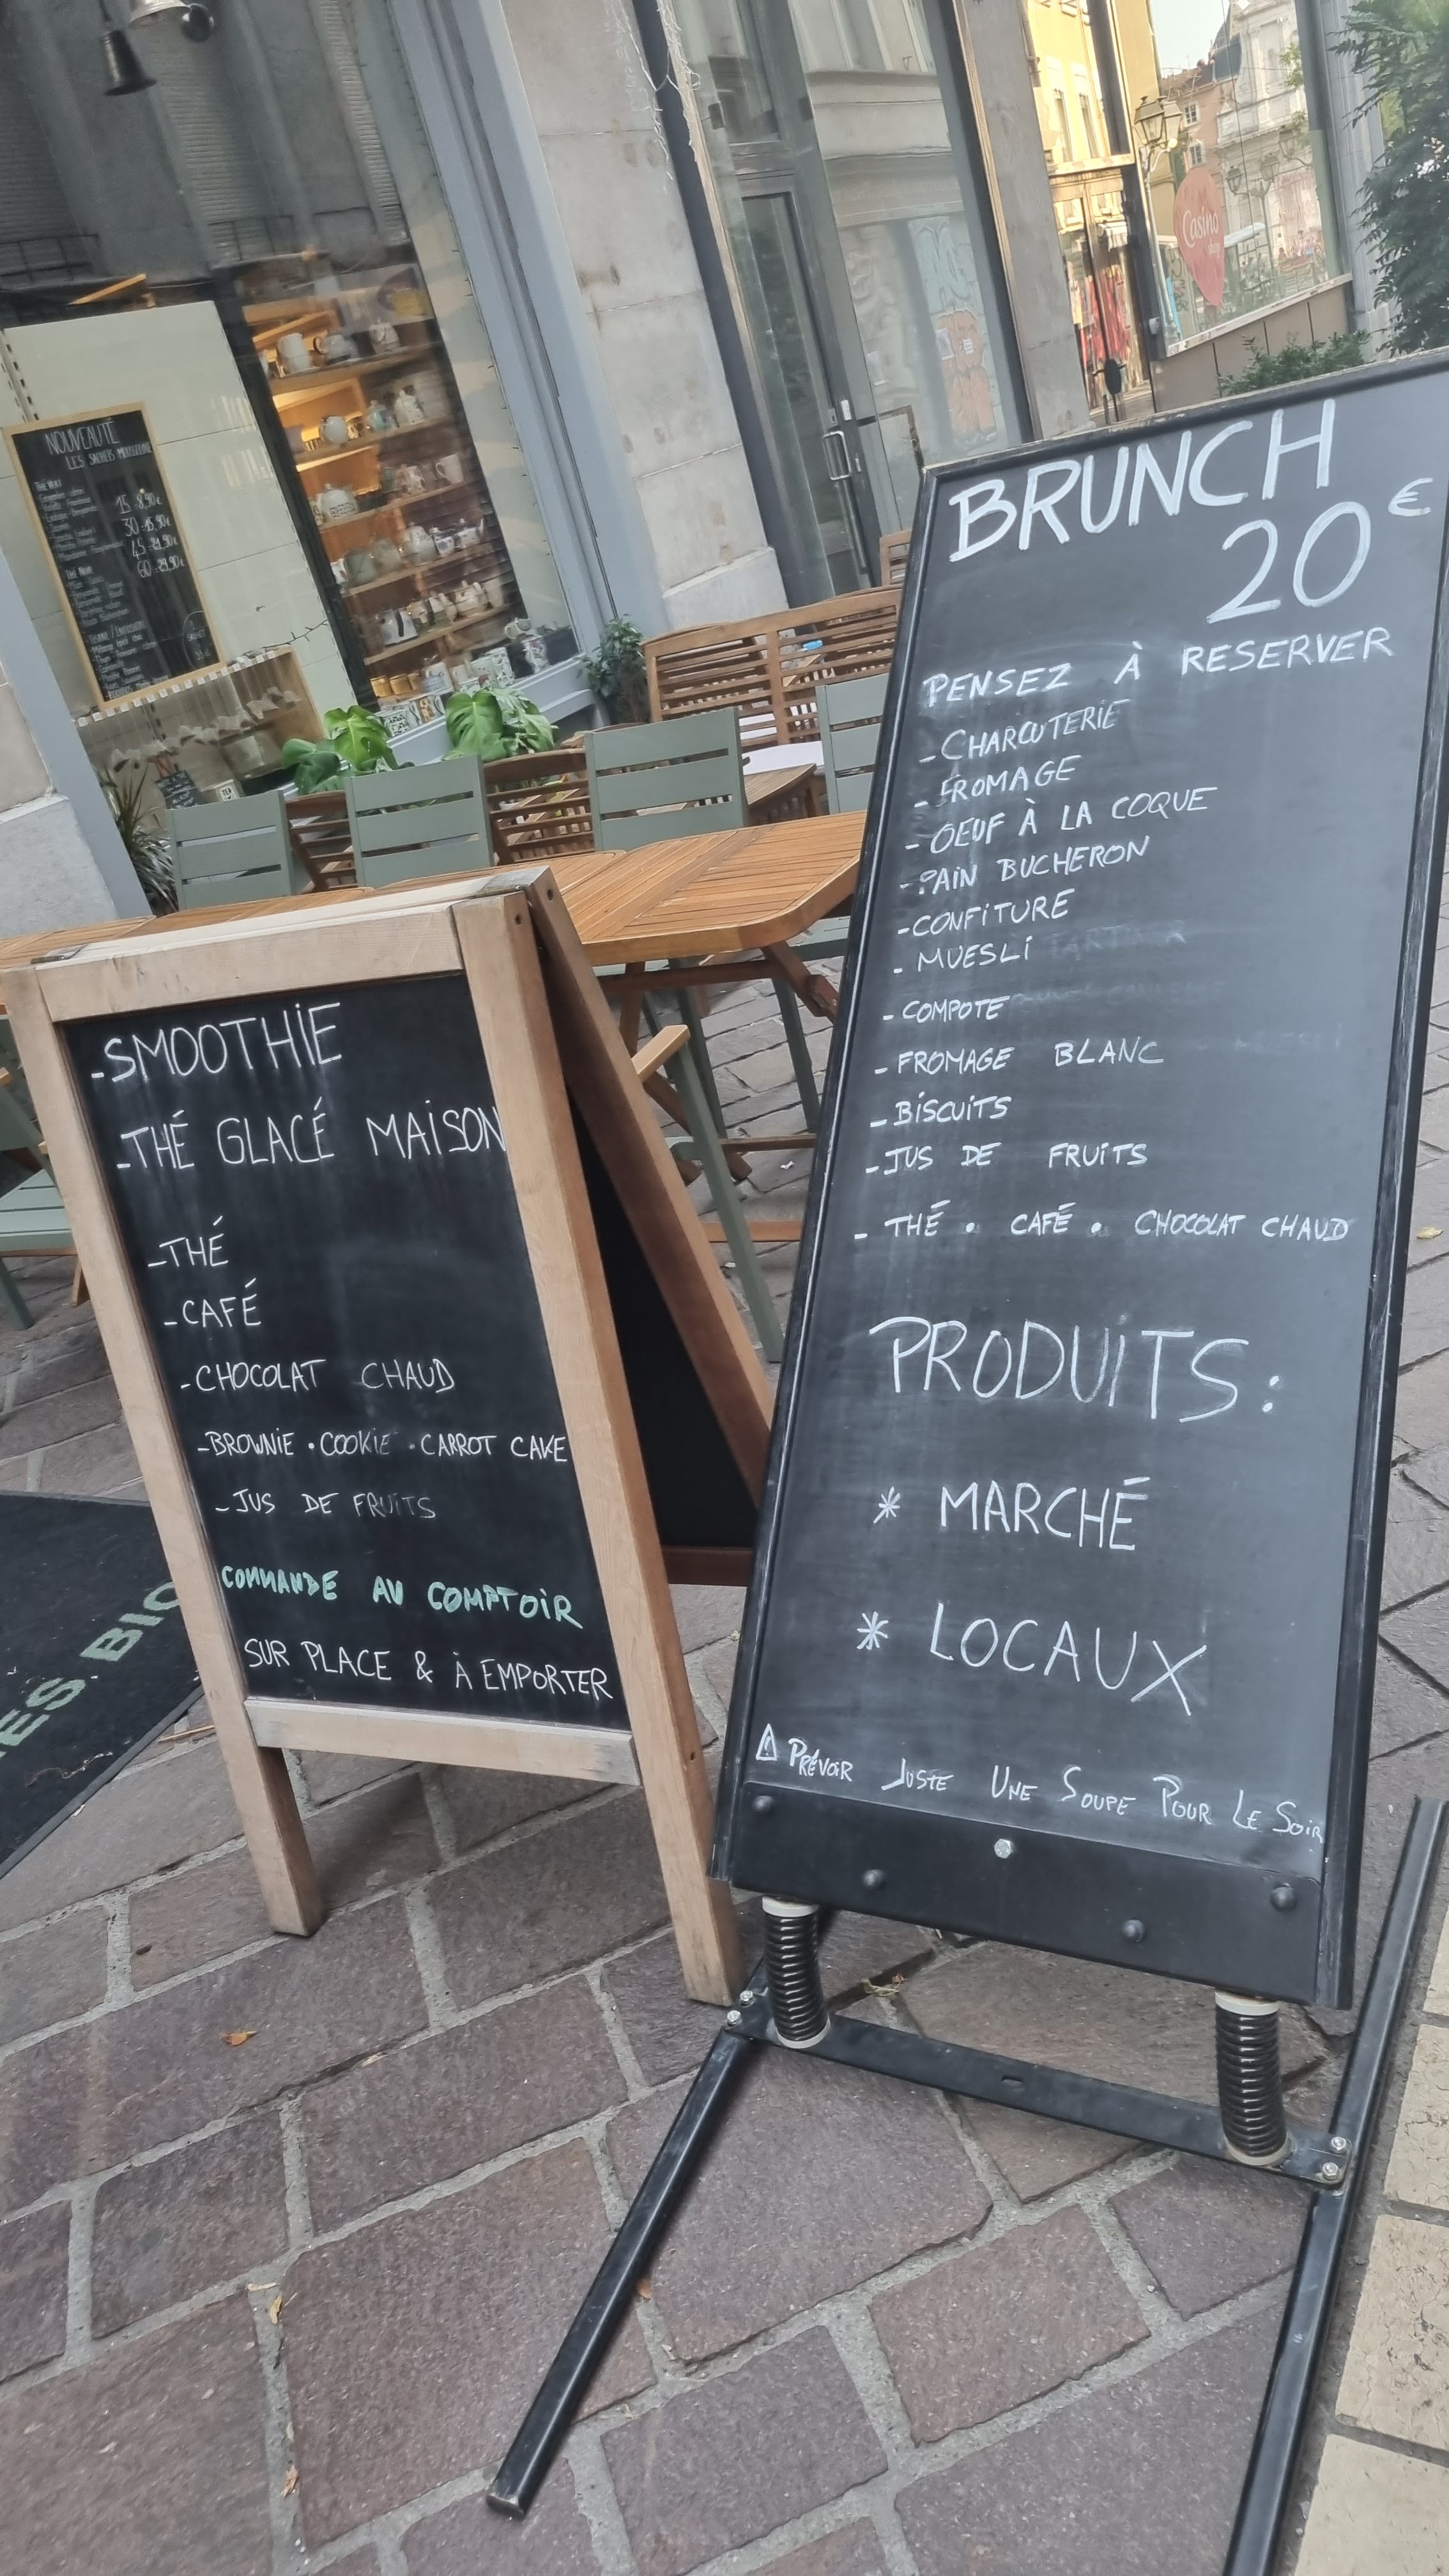 NOUVEAUTÉ
15 = 8,90€
30 = 15,90€
45 = 21,90€
60 = 29,90€
Casino
shop
BRUNCH
20€
PENSEZ À RESERVER
- CHARCUTERIE
- FROMAGE
- OEUF À LA COQUE
- PAIN BUCHERON
- CONFITURE
- MUESLI
- COMPOTE
- FROMAGE BLANC
- BISCUITS
- JUS DE FRUITS
- THÉ . CAFÉ . CHOCOLAT CHAUD
PRODUITS :
* MARCHÉ
* LOCAUX
⚠ PRÉVOIR JUSTE UNE SOUPE POUR LE SOIR
- SMOOTHIE
- THÉ GLACÉ MAISON
- THÉ
- CAFÉ
- CHOCOLAT CHAUD
- BROWNIE . COOKIE . CARROT CAKE
- JUS DE FRUITS
COMMANDE AU COMPTOIR
SUR PLACE & À EMPORTER
ES. BIO